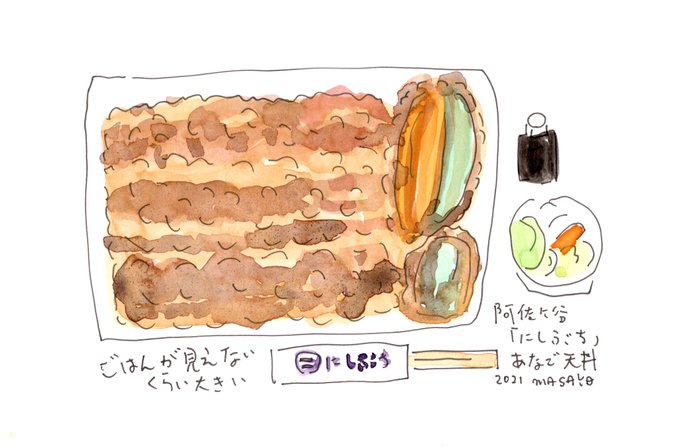 ごはんが見えない
くらい大きい
にしぶち
阿佐ヶ谷
「にしぶち」
あなご天丼
2021 MASAYO